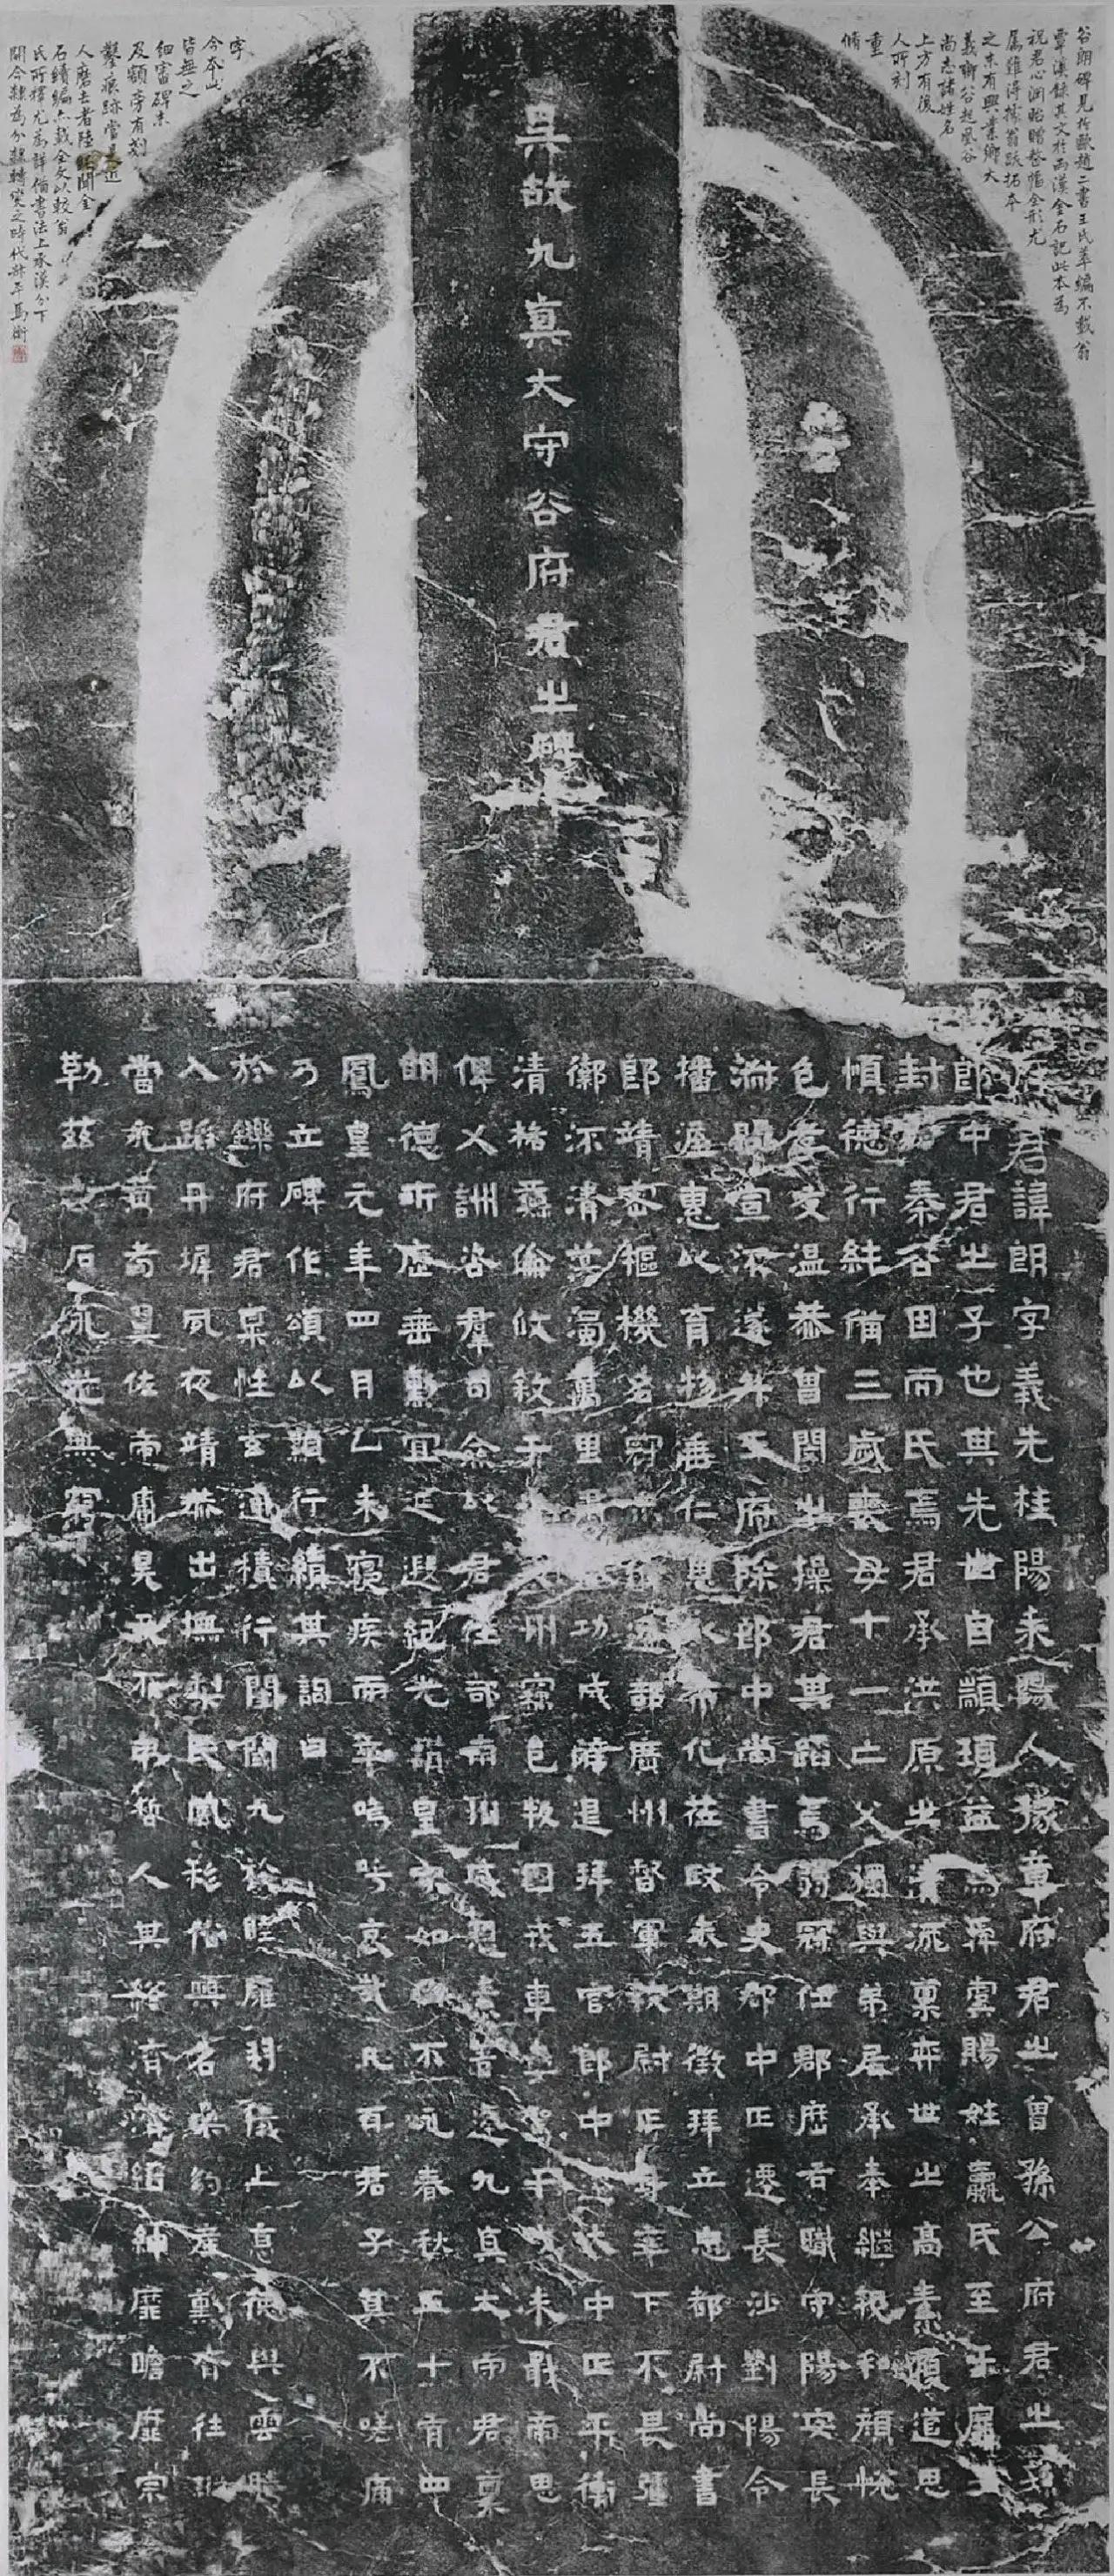 谷朗碑見於歐趙二書王氏萃編不載翁
覃溪錄其文於兩漢金石記此本為
祝君心淵貽贈整幅全形尤
屬難得據翁跋拓本
之末有興業鄉大
義鄉谷起風谷
尚志諸姓名
上方有後
人所刻
重
脩
字
今本此
皆無之
細審碑末
及額旁有刻
鑿痕跡當是近
人磨去者陸聞金
石續編亦載全文以較翁
氏所釋尤為詳備書法上承漢分下
開今隸為分隸轉變之時代 馬衡
吳故九真太守谷府君之碑
府君諱朗字義先桂陽耒陽人豫章府君之曾孫公府君之孫
郎中君之子也其先世自顓頊益為舜虞賜姓嬴氏至于扉
封秦谷因而氏焉君承洪原之清流稟弈世之高素願道思
順德行純備三歲喪母十一亡父獨與弟居承奉繼親和顏悅
色孝友温恭曾閔之操君其蹈焉弱冠仕郡歷右職守陽安長
淋曜宣深遂升王府除郎中尚書令史郡中正遷長沙劉陽令
播惠以育物仁恩以布化莅政未期徵拜立忠都尉尚書
郎靖密樞機名冠部廣州督軍校尉正身率下不畏彊
禦不清濁萬里功成辭退拜五官郎中大中正平衡
清格彝倫攸敘于交州竄邑叛國戎車駕干戈未戢帝思
俾乂訓咨羣司僉以君往部南州威恩素著遷九真太守君稟
明德所歷垂勳宜延遐紀光輔皇家如何不永春秋五十有四
鳳皇元年四月乙未寢疾而卒嗚呼哀哉凡百君子其不嗟痛
乃立碑作頌以顯行績其詞曰
於鑠府君稟性玄通積行閨閫九族睦雍羽儀上京德與雲騰
入踐丹墀夙夜靖恭出撫黎民風移俗興名
當究黃耇翼佐帝庸昊天不弔哲人其終濟濟縉紳靡瞻靡宗
勒茲玄石永光無窮